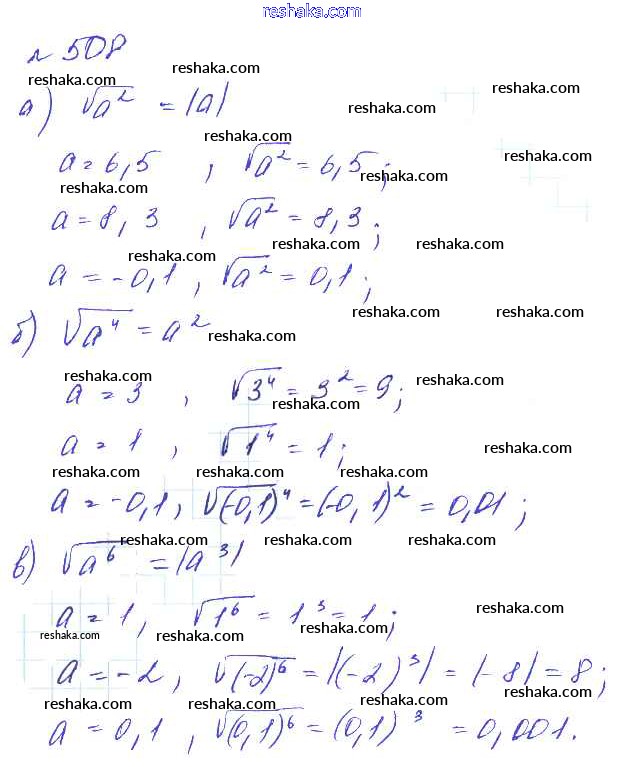 reshaka.com
№ 508
reshaka.com reshaka.com reshaka.com
а) √a² = |a| reshaka.com
reshaka.com reshaka.com
a = 6,5 , √a² = 6,5;
reshaka.com reshaka.com
a = 8,3 , √a² = 8,3;
reshaka.com reshaka.com reshaka.com
a = -0,1 , √a² = 0,1;
reshaka.com reshaka.com
б) √a⁴ = a² reshaka.com
reshaka.com reshaka.com
a = 3 , √3⁴ = 3² = 9;
reshaka.com
a = 1 , √1⁴ = 1; reshaka.com
reshaka.com reshaka.com reshaka.com
a = -0,1 , √(-0,1)⁴ = (-0,1)² = 0,01;
reshaka.com reshaka.com reshaka.com
в) √a⁶ = |a³|
a = 1, √1⁶ = 1³ = 1; reshaka.com
reshaka.com reshaka.com reshaka.com
a = -2 , √(-2)⁶ = |(-2)³| = |-8| = 8;
reshaka.com reshaka.com reshaka.com
a = 0,1 , √(0,1)⁶ = (0,1)³ = 0,001.
reshaka.com reshaka.com reshaka.com